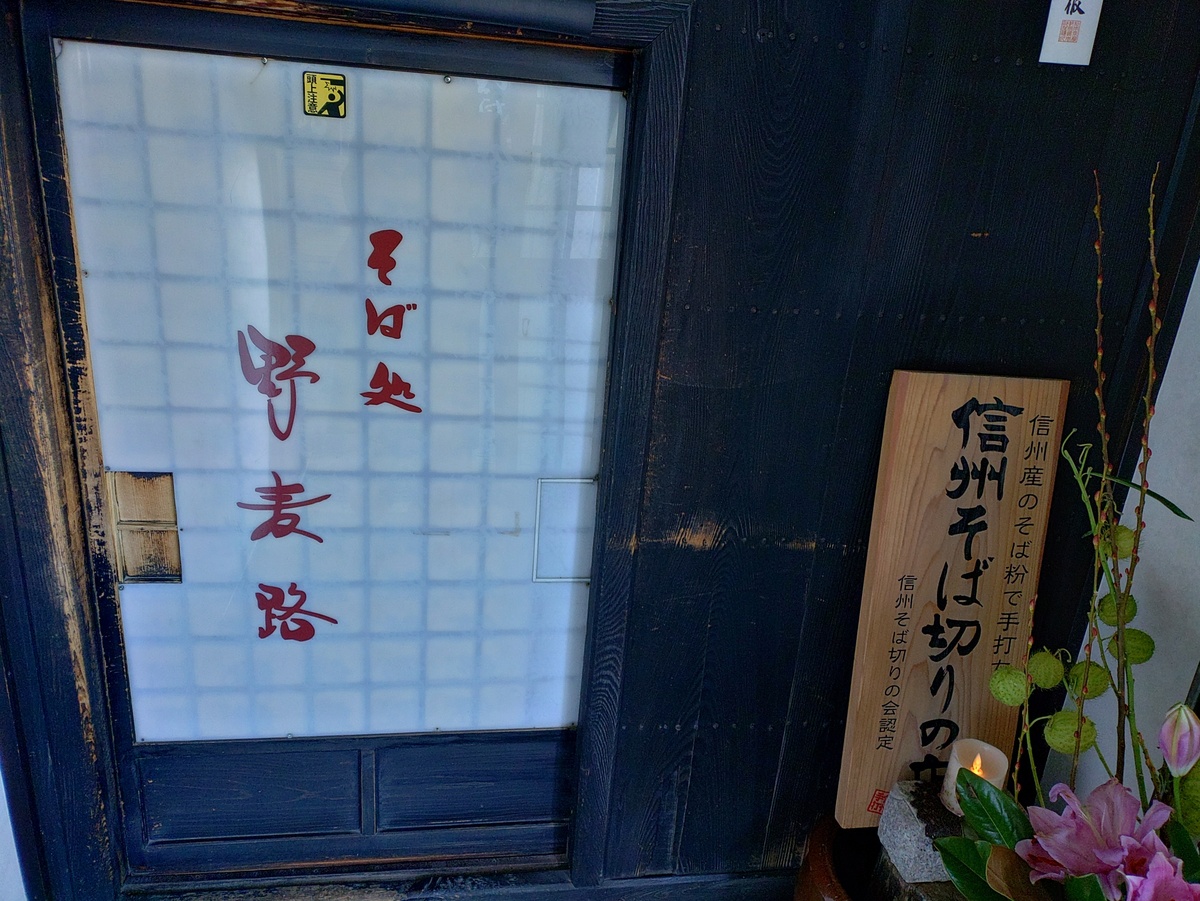 頭上注意
そば処
野麦路
信州産のそば粉で手打
信州そば切りの
信州そば切りの会認定